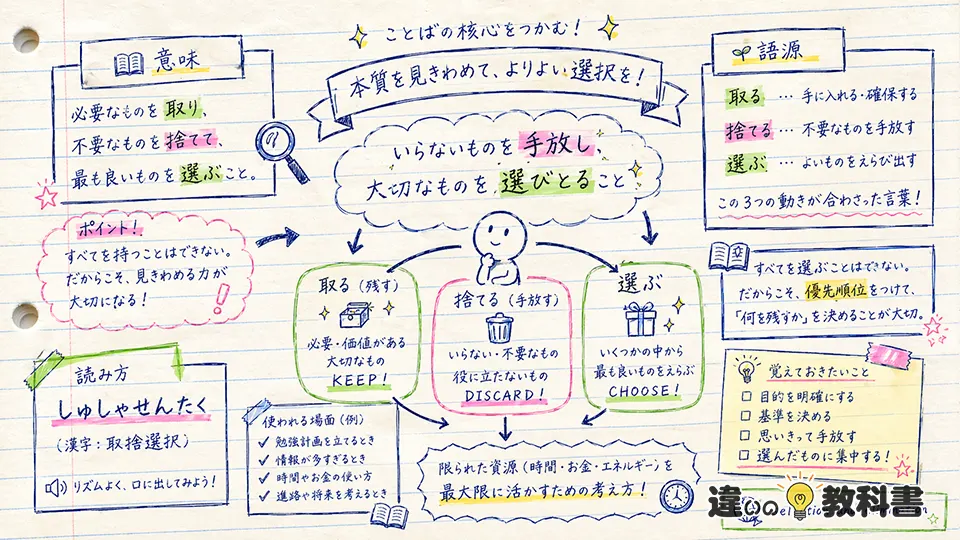 ことばの核心をつかむ！
本質を見きわめて、よりよい選択を！
意味
必要なものを 取り、
不要なものを 捨てて、
最も良いものを 選ぶこと。
いらないものを 手放し、
大切なものを 選びとること
語源
取る … 手に入れる・確保する
捨てる … 不要なものを手放す
選ぶ … よいものをえらび出す
この3つの動きが合わさった言葉！
ポイント！
すべてを持つことはできない。
だからこそ、見きわめる力が
大切になる！
取る（残す）
必要・価値がある
大切なもの
KEEP！
捨てる（手放す）
いらない・不要なもの
役に立たないもの
DISCARD！
選ぶ
いくつかの中から
最も良いものをえらぶ
CHOOSE！
すべてを選ぶことはできない。
だからこそ、優先順位をつけて、
「何を残すか」を決めることが大切。
読み方
しゅしゃせんたく
（漢字：取捨選択）
リズムよく、口に出してみよう！
使われる場面（例）
✓ 勉強計画を立てるとき
✓ 情報が多すぎるとき
✓ 時間やお金の使い方
✓ 進路や将来を考えるとき
限られた資源（時間・お金・エネルギー）を
最大限に活かすための考え方！
覚えておきたいこと
□ 目的を明確にする
□ 基準を決める
□ 思いきって手放す
□ 選んだものに集中する！
違いの教科書